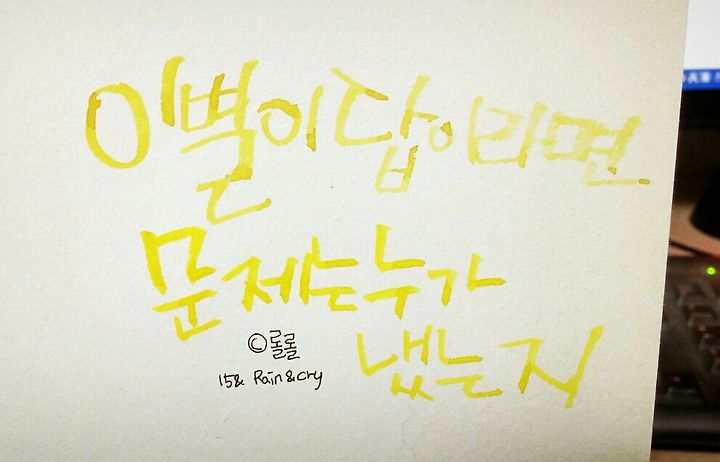 이별이 답이라면
문제는 누가
냈는지
©롤롤
15& Rain&cry